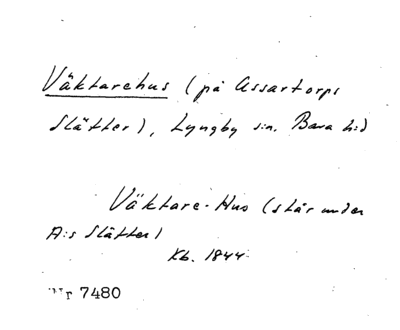 Väktarehus (på Assartorps
Slätter), Lyngby sn. Bara hd
Väktare-Hus (står under
A:s Slätter)
Kb. 1844
Nr 7480